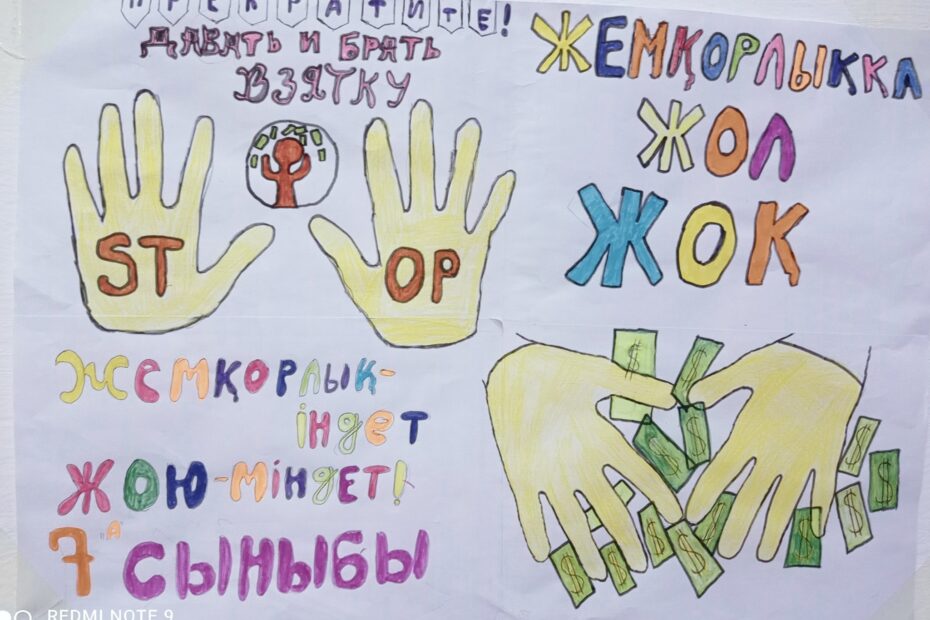 ПРЕКРАТИТЕ!
ДАВАТЬ И БРАТЬ
ВЗЯТКУ
ST OP
ЖЕМҚОРЛЫҚҚА
ЖОЛ
ЖОК
ЖЕМҚОРЛЫҚ-
індет
ЖОЮ-МІНДЕТ!
7"А" СЫНЫБЫ
REDMI NOTE 9